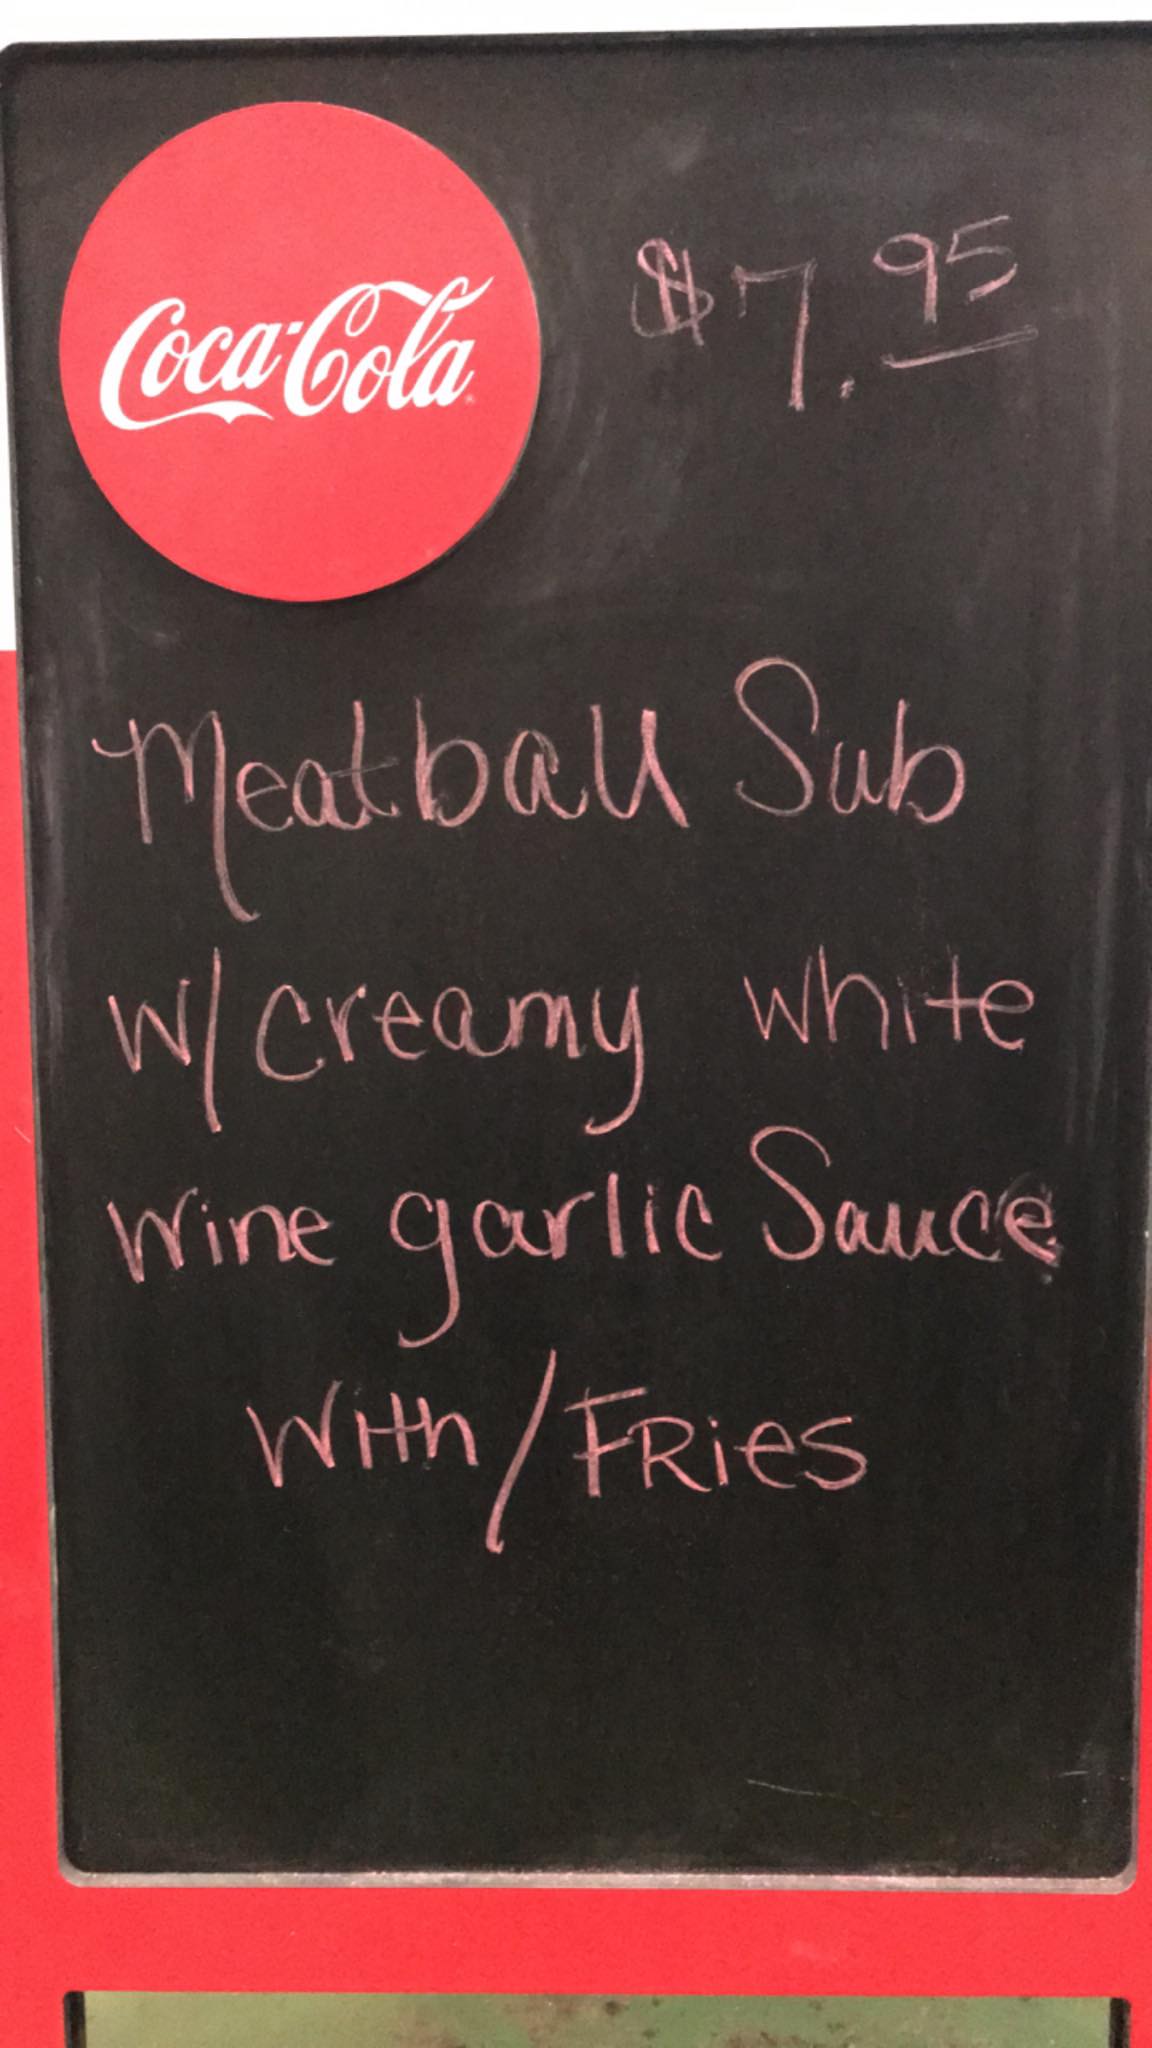 Coca-Cola
$7.95
Meatball Sub
w/creamy white
wine garlic Sauce
With/FRies